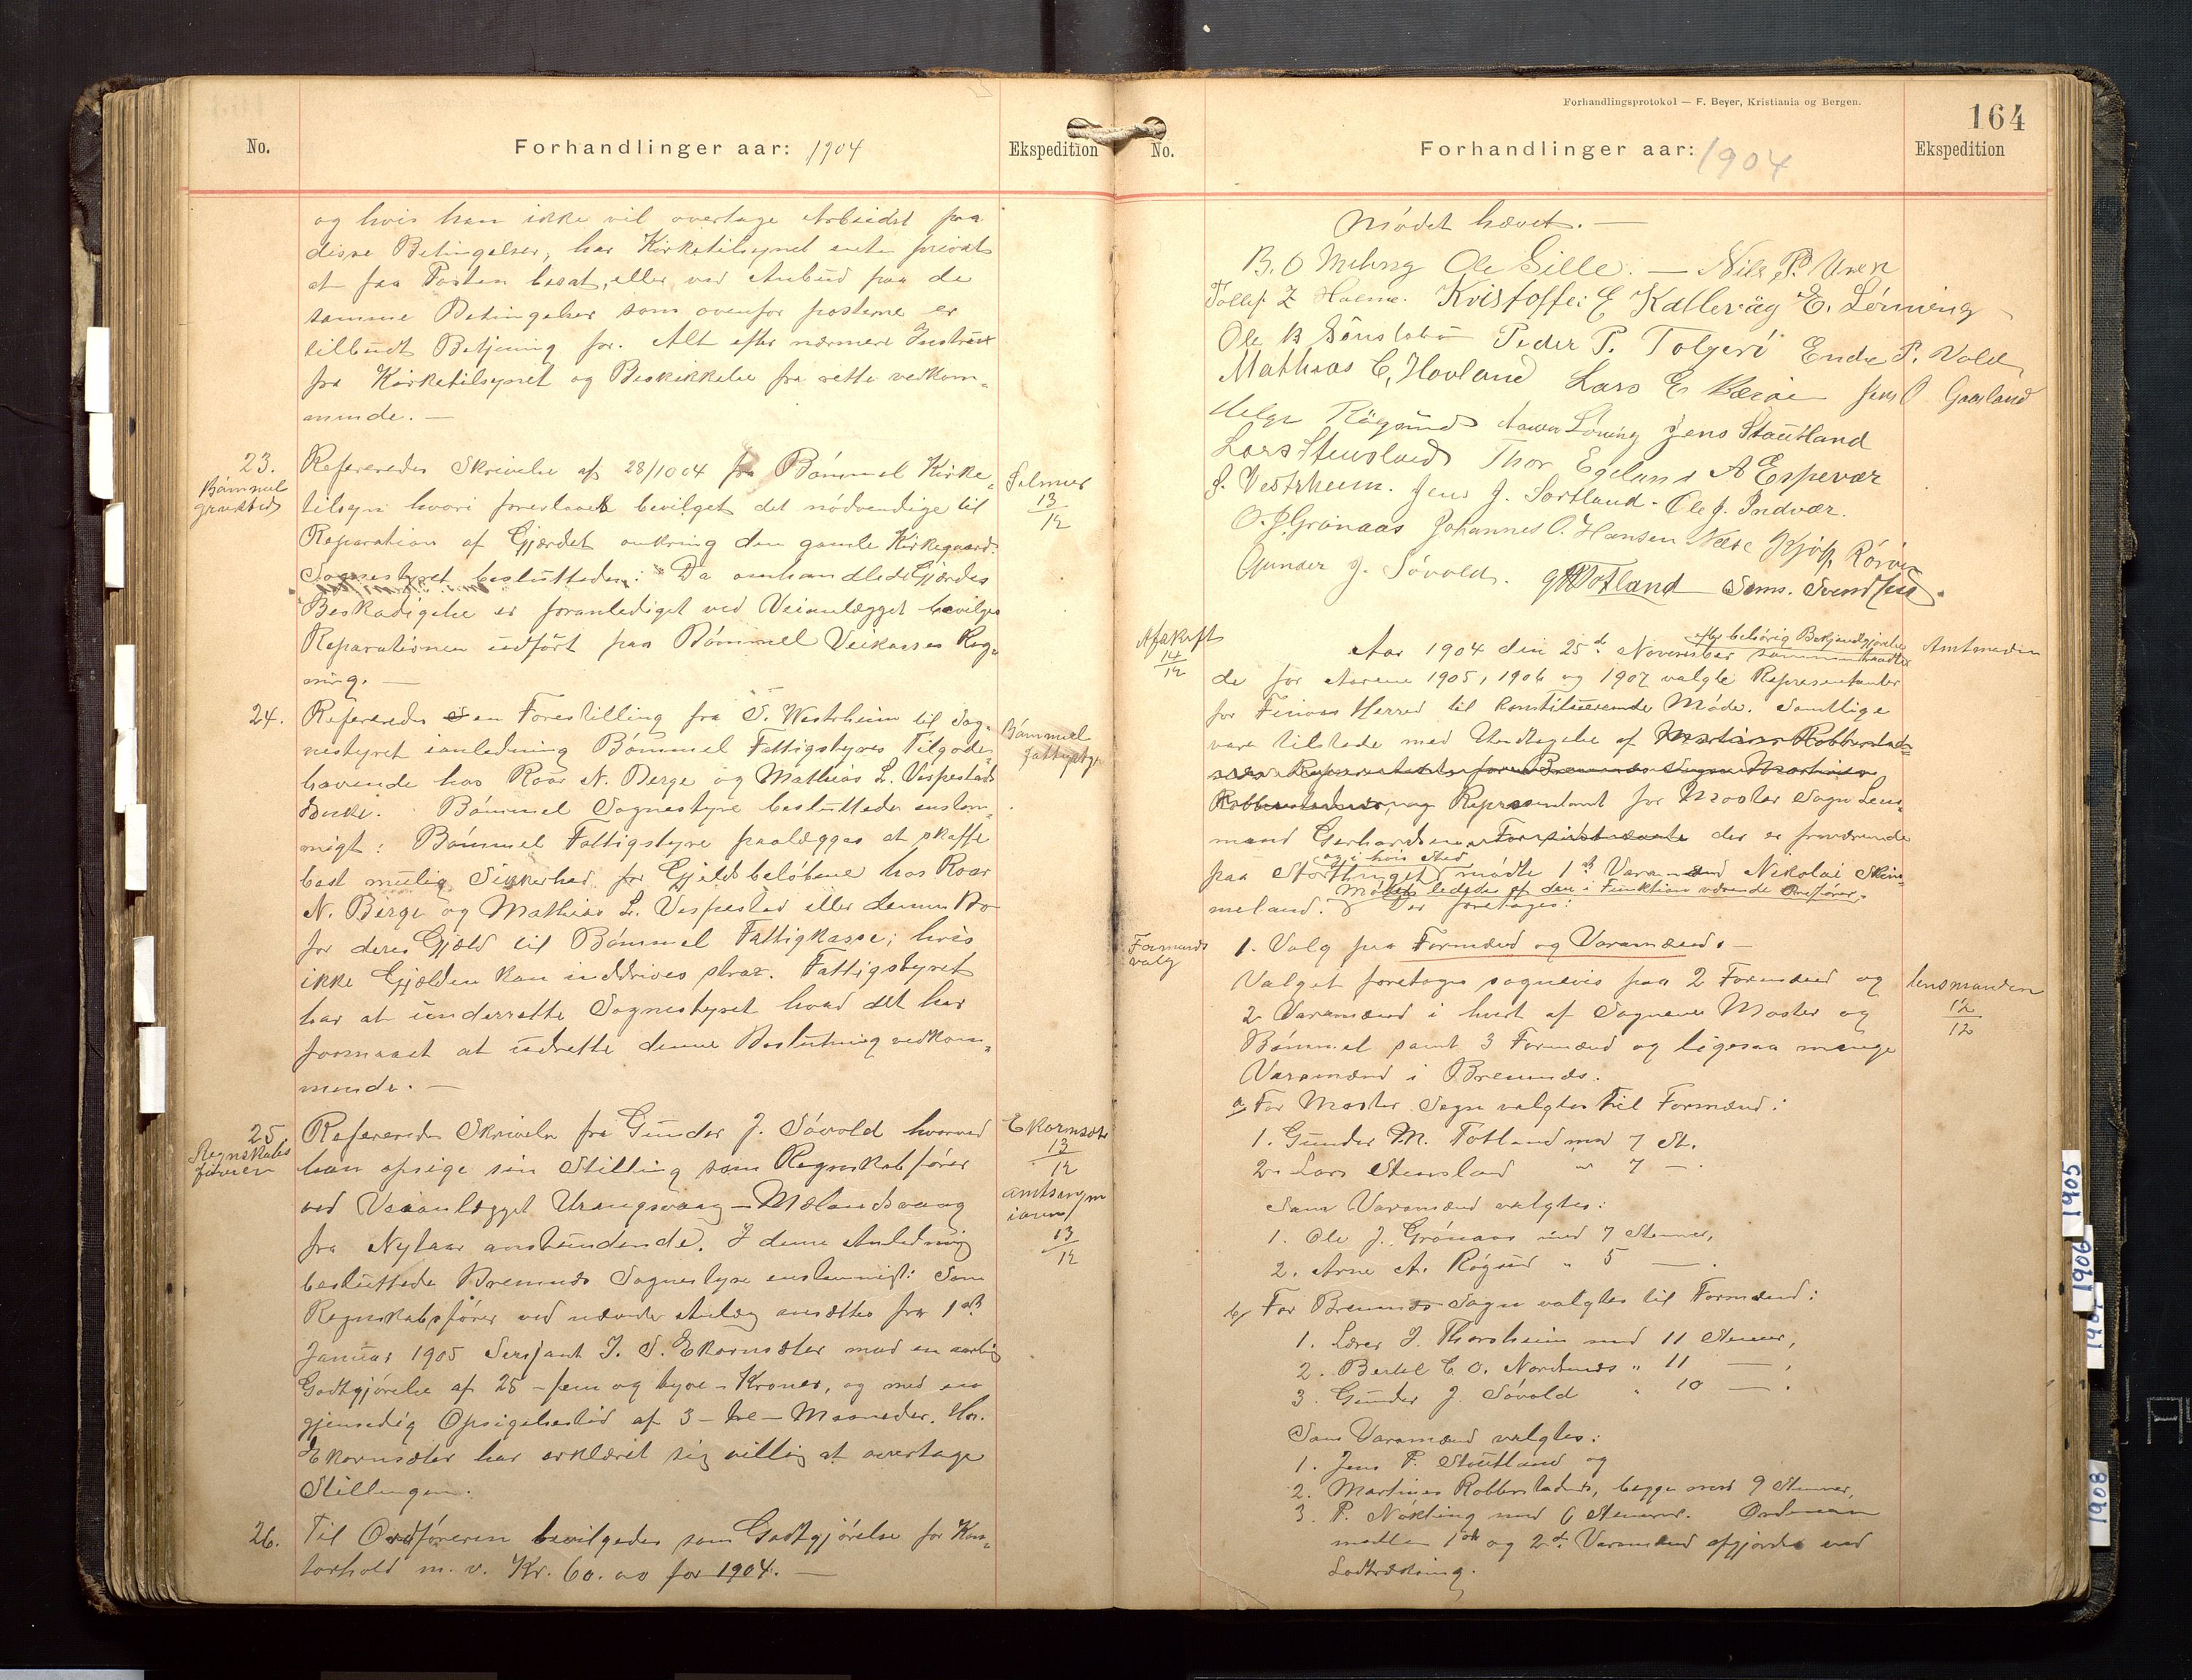 No.
Forhandlinger aar: 1904
Ekspedition
og hvis han ikke vil overtage Arbeidet paa
disse Betingelser, har Kirketilsynet enten privat
at faa Posten besat, eller ved Anbud paa de
samme Betingelser som ovenfor posterne er
tilbudt Betjening for. Alt efter nærmere Instrux
fra Kirketilsynet og Beskikkelse fra rette vedkom-
mende. —
23.
Bømmel
gravsted
Refereredes Skrivelse af 28/10 04 fra Bømmel Kirke-
tilsyn hvori foreslaaes bevilget det nødvendige til
Reparation af Gjærdet omkring den gamle Kirkegaard.
Sognestyret besluttede: Da omhandlede Gjærdes
Beskadigelse er foranlediget ved Veianlægget bevilges
Reparationen udført paa Bømmel Veikasses Reg-
ning. —
13
12
24.
Refereredes en Forestilling fra S. Westrheim til Sog-
nestyret i anledning Bømmel Fattigstyres Tilgode-
havende hos Roar N. Berge og Mathias L. Vespestads
Enke. Bømmel Sognestyre besluttede enstem-
migt: Bømmel Fattigstyre paalægges at skaffe
best mulig Sikkerhed for Gjeldsbeløbene hos Roar
N. Berge og Mathias L. Vespestad eller dennes Bo
for deres Gjæld til Bømmel Fattigkasse; hvis
ikke Gjælden kan inddrives strax. Fattigstyret
har at underrette Sognestyret hvad det har
formaaet at udrette denne Beslutning vedkom-
mende. —
Bømmel
fattigstyre
25
Regnskabs
føreren
Refereredes Skrivelse fra Gunder J. Søvold hvorved
han opsige sin Stilling som Regnskabsfører
ved Veianlægget Urangsvaag – Mælandsvaag
fra Nytaar anstundende. I denne Anledning
besluttede Bremnæs Sognestyre enstemmigt: Som
Regnskabsfører ved nævnte Anlæg ansættes fra 1ste
Januar 1905 Sersjant J. S. Ekornsæter med en aarlig
Godtgjørelse af 25 – fem og tyve – Kroner, og med en
gjensidig Opsigelsestid af 3 – tre – Maaneder. Hr.
Ekornsæter har erklæret sig villig at overtage
Stillingen.
Ekornsæter
13
12
13
12
26.
Til Ordføreren bevilgedes som Godtgjørelse for Kon-
torhold m. v. Kr. 60.00 for 1904. —
Forhandlingsprotokol — F. Beyer, Kristiania og Bergen.
164
No.
Forhandlinger aar: 1904
Ekspedition
Mødet hævet. —
B. O Ole Gille. — Nils P. Vren
Tollef Z Holme. Kristoffer E Kallevåg E. Lønning
Ole B Sønstabø Peder P. Tolgerö Endre P. Vold
Mathias C. Hovland Lars E Jens O Gaasland
Helge Røgsund Lønning Jens Stautland
Lars Stensland Thor Egeland A Espevær
J. Vestrheim. Jens J. Sortland. Ole J. Indvær.
O. J. Grønaas Johannes O. Hansen Næse
Gunder J. Søvold. Totland Svendsen.
Afskrift
14
12
Aar 1904 den 25de November efter behørig Bekjendtgjørelse sammentraadte
de for Aarene 1905, 1906 og 1907 valgte Repræsentanter
for Finaas Herred til konstituerende Møde. Samtlige
vare tilstede med Undtagelse af Martines Robberstad-
Repræsentant for Moster Sogn Lens-
mand Gerhardsen der er fraværende
paa Storthinget og i hvis Sted mødte 1ste Varamand Nikolai Skim-
meland. Mødet lededes af den i Funktion værende Ordfører.
Der foretoges:
Amtmanden
Formands
valg
1. Valg paa Formænd og Varamænd. —
Valget foretoges sognevis paa 2 Formænd og
2 Varamænd i hvert af Sognene Moster og
Bømmel samt 3 Formænd og ligesaa mange
Varamænd i Bremnæs.
lensmanden
12
12
a, For Moster Sogn valgtes til Formænd:
1. Gunder M. Totland med 7 St.
2. Lars Stensland " 7 —.
Som Varamænd valgtes:
1. Ole J. Grønaas med 7 Stemmer,
2. Arne A. Røgsund " 5 —.
b, For Bremnæs Sogn valgtes til Formænd:
1. Lærer J. Thorsheim med 11 Stemmer,
2. Bertel C. O. Nordnæs " 11 —,
3. Gunder J. Søvold " 10 —.
Som Varamænd valgtes:
1. Jens P. Stautland og
2. Martines Robberstadnes, begge med 9 Stemmer,
3. P. Nøkling med 6 Stemmer. Ordenen
mellem 1ste og 2den Varamænd afgjordes ved
Lodtrækning.
1905
1906
1908